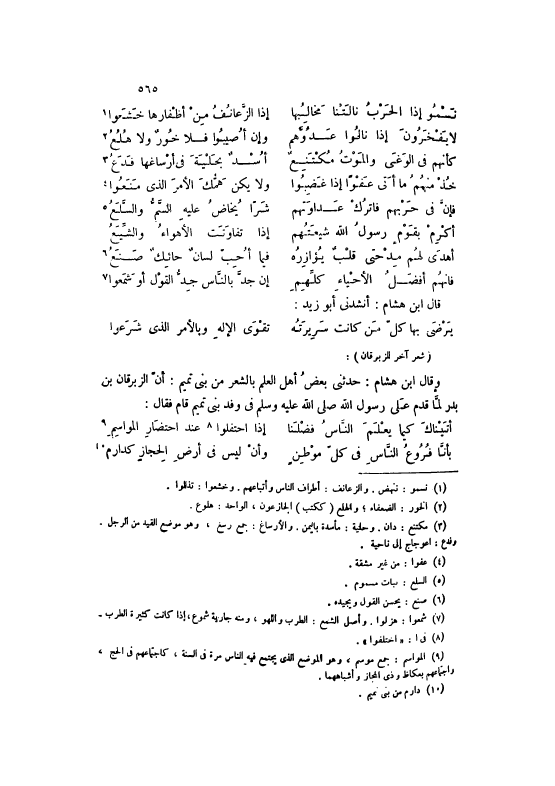 ٥٦٥
نَسْمُو إذا الحَرْبُ نالَتْنا مَخالِبُها إذا الزَّعانفُ مِنْ أظْفارِها خَشَعوا١
لا يَفْخَرُونَ إذا نالُوا عَدُوَّهم وإن أُصيبُوا فَلا خُورٌ ولا هُلُعُ٢
كأنهم فى الوَغَى والمَوْتُ مُكْتَنِعٌ أُسْدٌ بحَلْيَةَ فى أرْساغها فَدَعُ٣
خُذْ مِنْهُمُ ما أتى عَفْوًا إذا غَضِبُوا ولا يكن هَمُّكَ الأمرَ الذى مَنَعُوا٤
فإنَّ فى حَرْبهم فاترُكْ عَدَاوَتهم شَرًّا يُخاضُ عليه السَّمُّ والسَّلَعُ٥
أكْرِمْ بقَوْمٍ رسولُ الله شيعَتُهم إذا تفاوَتَت الأهواءُ والشِّيَعُ
أهدَى لهُم مِدْحَتى قلْبٌ يُؤازِرُه فيما أُحِبّ لسانٌ حائِكٌ صَنَعُ٦
فانهُم أفضَلُ الأحْياءِ كلِّهِمِ إن جدَّ بالنَّاس جِدُّ القوْل أو شَمَعُوا٧
قال ابن هشام : أنشدنى أبو زيد :
يَرْضَى بها كلّ مَن كانت سَرِيرَتُه تقوَى الإلهِ وبالأمر الذى شَرَعوا
( شعر آخر للزبرقان ) :
وقال ابن هشام : حدثنى بعضُ أهل العلم بالشعر من بنى تميم : أنّ الزبرقان بن
بدر لمَّا قدم على رسول الله صلى الله عليه وسلم فى وفد بنى تميم قام فقال :
أتَيْناكَ كيما يعْلمَ النَّاسُ فضْلَنا إذا احتفلوا٨ عند احتضَارِ المواسِمِ٩
بأنَّا فُرُوعُ النَّاسِ فى كلّ موْطِنٍ وأنْ ليس فى أرض الحِجازِ كدارم١٠
(١) نسمو : ننهض . والزعانف : أطراف الناس وأتباعهم . وخشعوا : تذللوا .
(٢) الخور : الضعفاء ؛ والهلع ( ككتب ) الجازعون ، الواحد : هلوع .
(٣) مكتنع : دان . وحلية : مأسدة باليمن . والأرساغ : جمع رسغ ، وهو موضع القيد من الرجل .
وفدع : اعوجاج إلى ناحية .
(٤) عفوا : من غير مشقة .
(٥) السلع : نبات مسموم .
(٦) صنع : يحسن القول ويجيده .
(٧) شمعوا : هزلوا . وأصل الشمع : الطرب واللهو ، ومنه جارية شموع ، إذا كانت كثيرة الطرب .
(٨) فى ا : « اختلفوا » .
(٩) المواسم : جمع موسم ، وهو الموضع الذى يجتمع فيه الناس مرة فى السنة ، كاجتماعهم فى الحج ،
واجتماعهم بعكاظ وذى المجاز وأشباههما .
(١٠) دارم من بنى تميم .